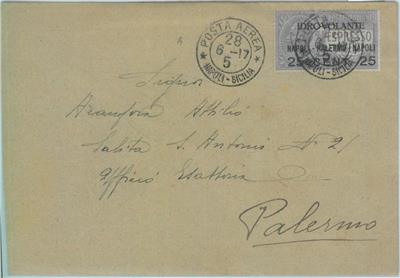 POSTA AEREA
28
6-17
5
NAPOLI-SICILIA
IDROVOLANTE
ESPRESSO
NAPOLI - PALERMO - NAPOLI
25 CENT. 25
NAPOLI-SICILIA
Signor
Attilio
Salita S. Antonio N° 21
Ufficio Esattoria
Palermo